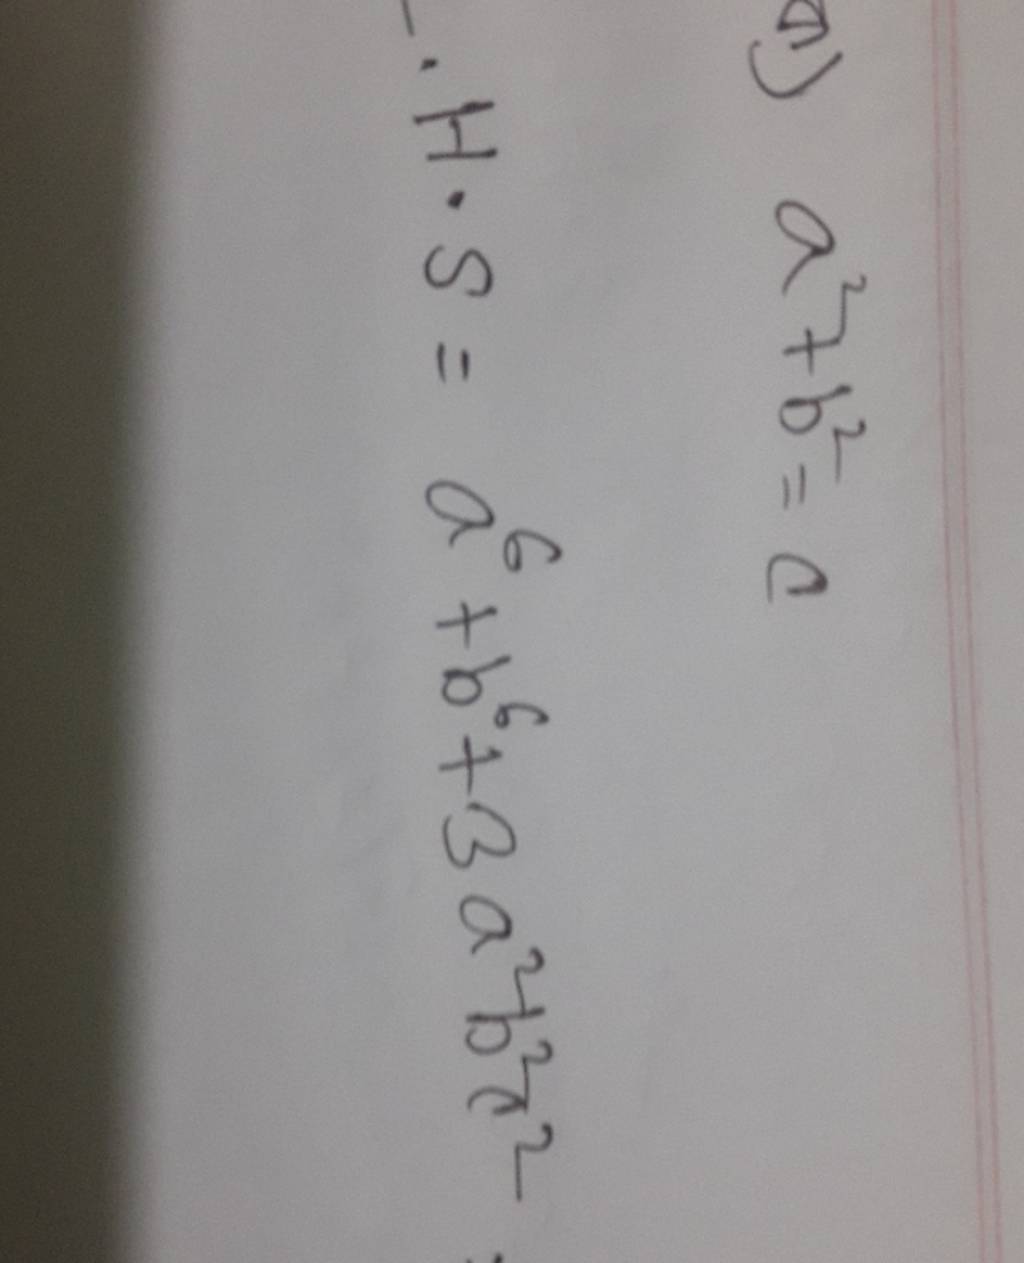 a² + b² = c
.H.S = a⁶ + b⁶ + 3a²b²c²